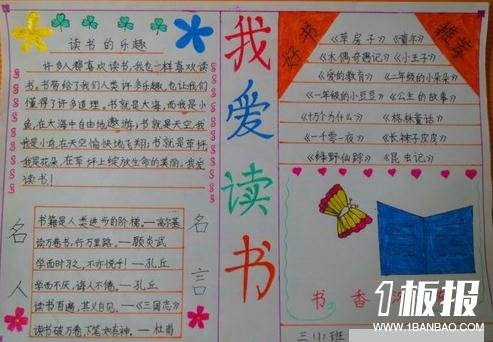 读书的乐趣
许多人都喜欢读书，我也一样喜欢读
书。书带给了我们人类许多乐趣，也让我们
懂得了许多道理。书就是大海，而我是小
鱼，在大海中自由地遨游；书就是天空，我
是小鸟，在天空愉快地飞翔；书就是草坪，
我是花朵，在草坪上绽放生命的美丽。我爱
读书！
名人名言
书籍是人类进步的阶梯。——高尔基
读万卷书，行万里路。——顾炎武
学而时习之，不亦悦乎！——孔丘
学而不厌，诲人不倦。——孔丘
读书百遍，其义自见。——《三国志》
读书破万卷，下笔如有神。——杜甫
我爱读书
好书推荐
《草房子》《童年》
《木偶奇遇记》《小王子》
《爱的教育》《二年级的小朵朵》
《一年级的小豆豆》《公主的故事》
《十万个为什么》《格林童话》
《一千零一夜》《长袜子皮皮》
《绿野仙踪》《昆虫记》
书香
三(1)班
1板报
WWW.1BANBAO.COM